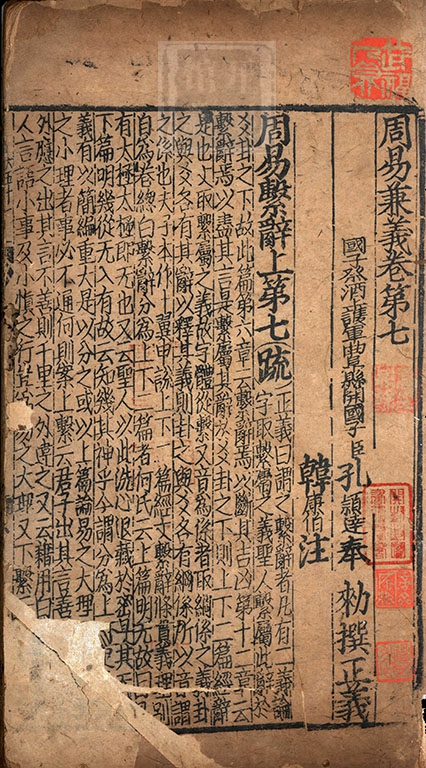 周易兼義卷第七
國子祭酒護軍曲阜縣開國子臣孔穎達奉 勅撰正義
韓康伯注
周易繫辭上第七疏
正義曰謂之繫辭者凡有二義論
字取繫屬之義聖人繫屬此辭於
爻卦之下故此篇第六章云繫辭焉以斷其吉凶第十二章云
繫辭焉以盡其言是繫屬其辭於爻卦之下則上下二篇經辭
是也文取繫屬之義故字體從繫又音為係者取綱係之義卦
之與爻各有其辭以釋其義則卦之與爻各有綱係所以音謂
之係也夫子本作十翼申說上下二篇經文繫辭條貫義理別
自為卷總曰繫辭分為上下二篇者何氏云上篇明无故曰
有太極太極即无也又云聖人以此洗心退藏於密是其无
下篇明幾從无入有故云知幾其神乎今謂分為上
義有以簡編重大是以分之或以上篇論易之大理
之小理者事必不通何則案上繫云君子出其言善
外應之出其言不善則千里之外違之又云藉用白
人言語小事及小慎之行豈為易之大理又下繫